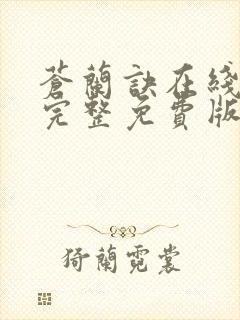 蒼蘭訣在綫
完整免費版
猗蘭霓裳